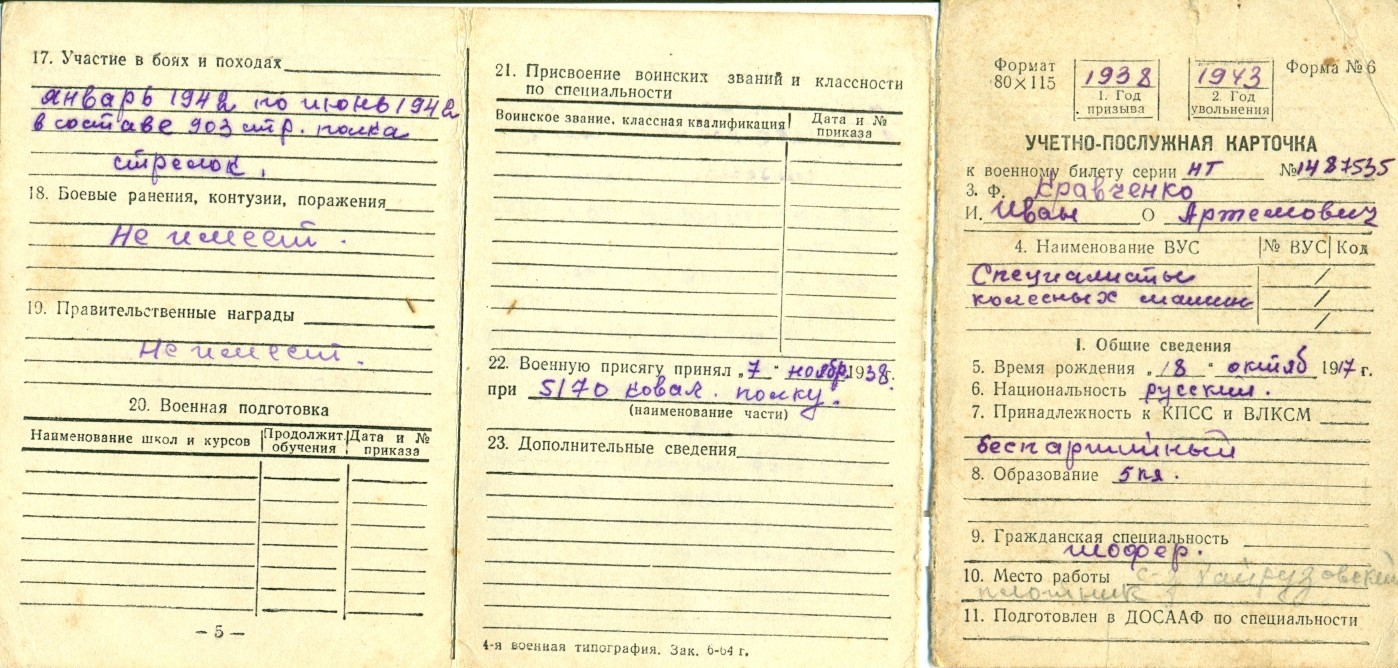 17. Участие в боях и походах
январь 1942 по июнь 1942
в составе 903 стр. полка
стрелок.
18. Боевые ранения, контузии, поражения
Не имеет.
19. Правительственные награды
Не имеет.
20. Военная подготовка
Наименование школ и курсов Продолжит. обучения Дата и № приказа
— 5 —
21. Присвоение воинских званий и классности
по специальности
Воинское звание, классная квалификация Дата и № приказа
22. Военную присягу принял „7" ноябр. 1938г.
при 5170 кавал. полку.
(наименование части)
23. Дополнительные сведения
4-я военная типография. Зак. 6-64 г.
Формат 80×115
1938
1. Год призыва
1943
2. Год увольнения
Форма № 6
УЧЕТНО-ПОСЛУЖНАЯ КАРТОЧКА
к военному билету серии НТ № 1487535
3. Ф. Кравченко
И. Иван О Артемович
4. Наименование ВУС № ВУС Код
Специалисты /
колесных машин /
/
I. Общие сведения
5. Время рождения „18" октяб 1917 г.
6. Национальность русский.
7. Принадлежность к КПСС и ВЛКСМ
беспартийный
8. Образование 5 кл.
9. Гражданская специальность
шофер.
10. Место работы с-з
плотник
11. Подготовлен в ДОСААФ по специальности